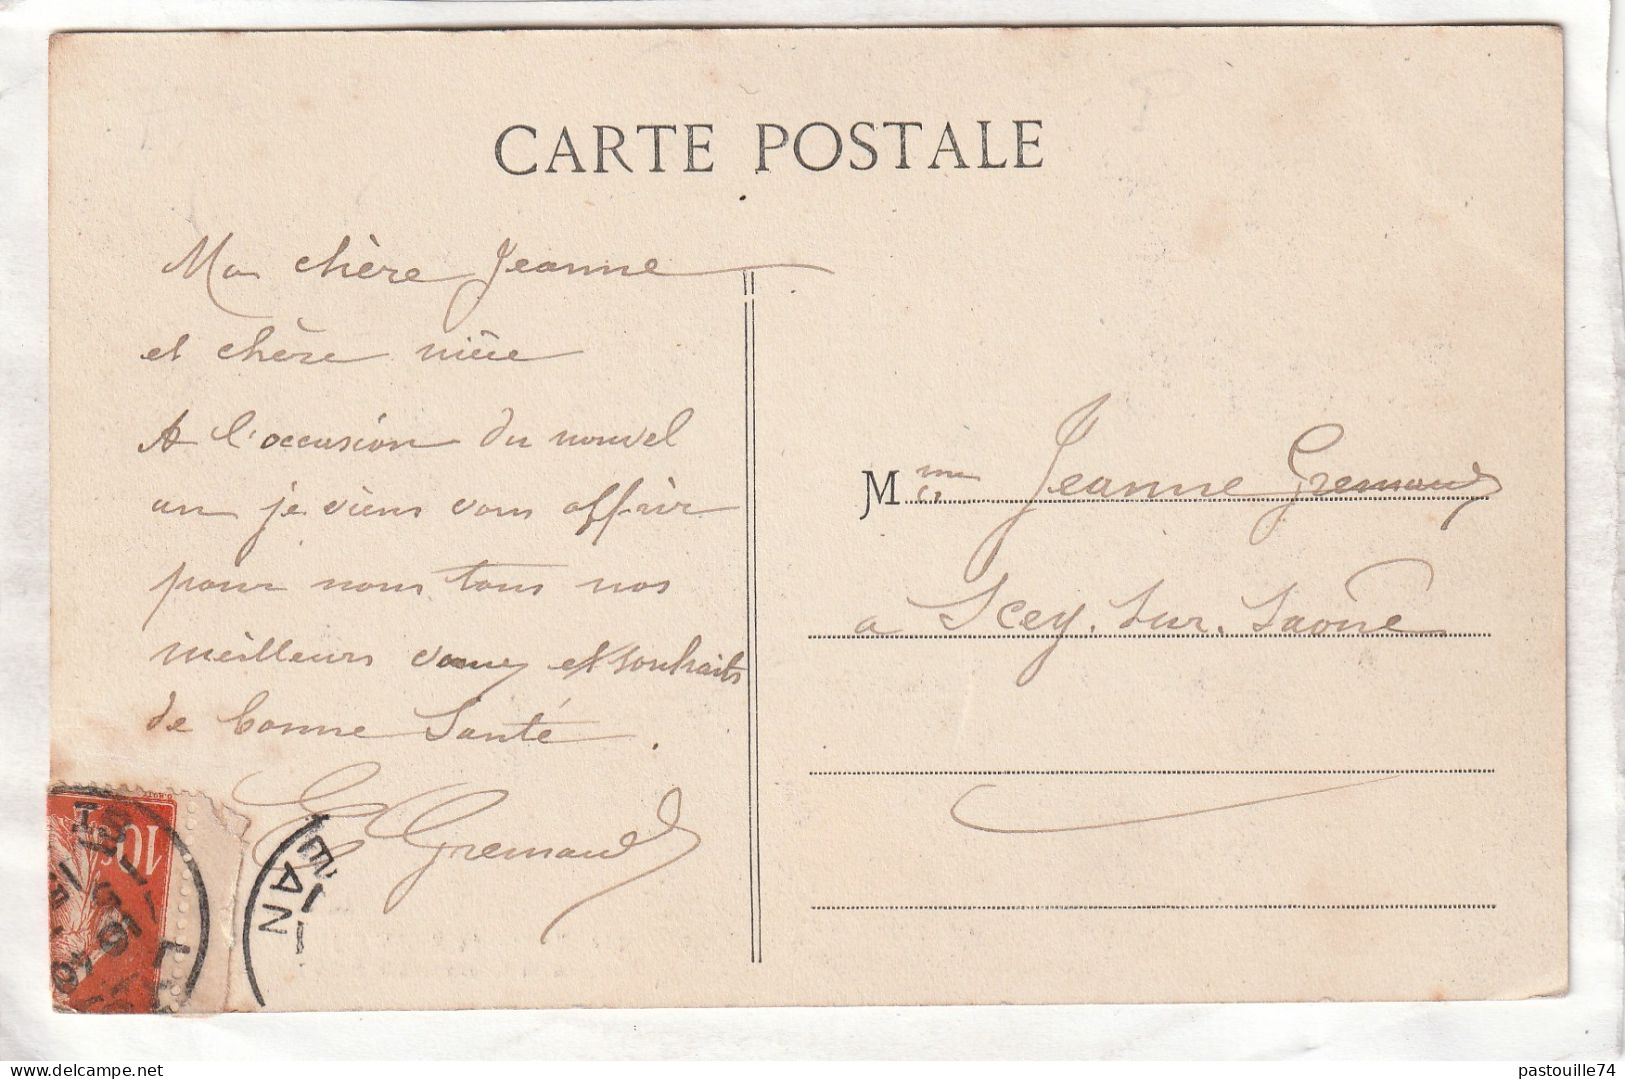 CARTE POSTALE
Ma chère Jeanne
et chère nièce
A l'occasion du nouvel
an je viens vous offrir
pour nous tous nos
meilleurs vœux et souhaits
de bonne Santé.
Gremaud
Mme Jeanne Gremaud
a Scey. sur. Saône
10c
pastouille74